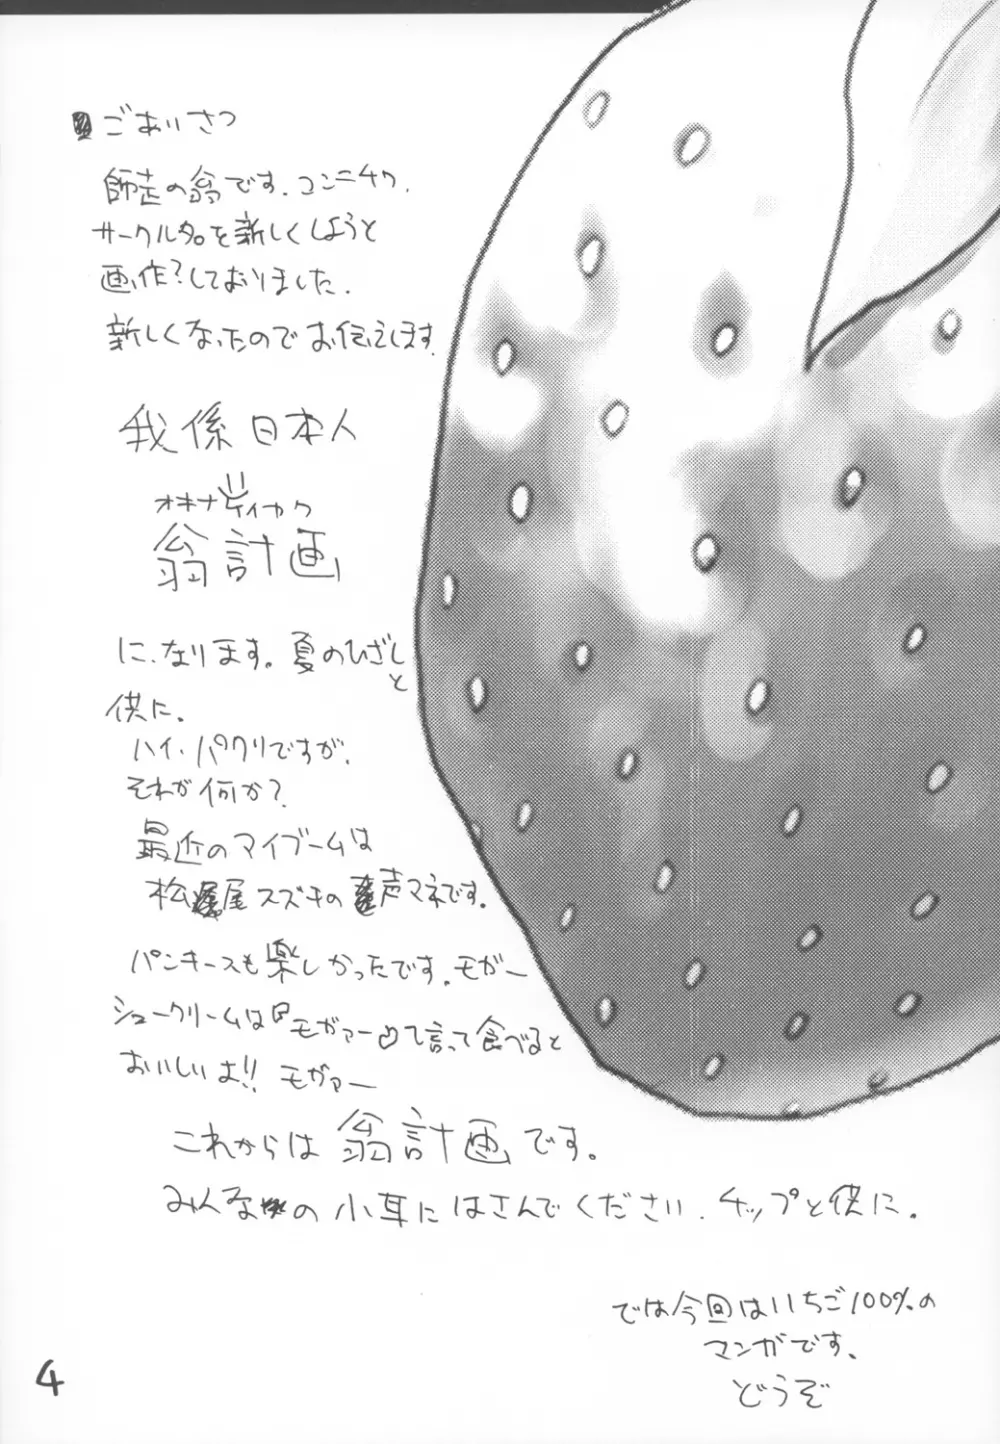 ごあいさつ
師走の翁です.コンニチワ.
サークル名を新しくしようと
画作?しておりました.
新しくなったのでお伝えします.
我係日本人
オキナディイカク
翁計画
に、なります。夏のひざしと
供に.
ハイ・パクリですが、
それが何か?
最近のマイブームは
松尾スズキの声マネです.
パンキースも楽しかったです.モガー
シュークリームは『モガァー』て言って食べると
おいしいよ!! モガァー
これからは翁計画です。
みんなの小耳にはさんでください.チップと供に.
では今回はいちご100%の
マンガです、
どうぞ
4